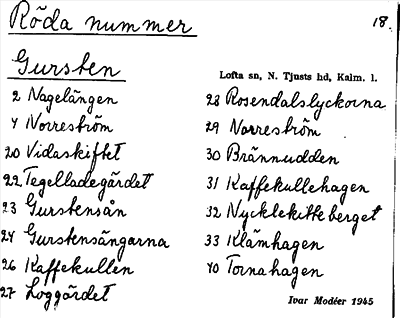 Röda nummer
18.
Gursten
Lofta sn, N. Tjusts hd, Kalm. l.
2 Nagelängen
4 Norreström
20 Vidaskiftet
22 Tegelladegärdet
23 Gurstensån
24 Gurstensängarna
26 Kaffekullen
27 Loggärdet
28 Rosendalslyckorna
29 Norreström
30 Brännudden
31 Kaffekullehagen
32 Nycklekitteberget
33 Klämhagen
40 Tornahagen
Ivar Modéer 1945